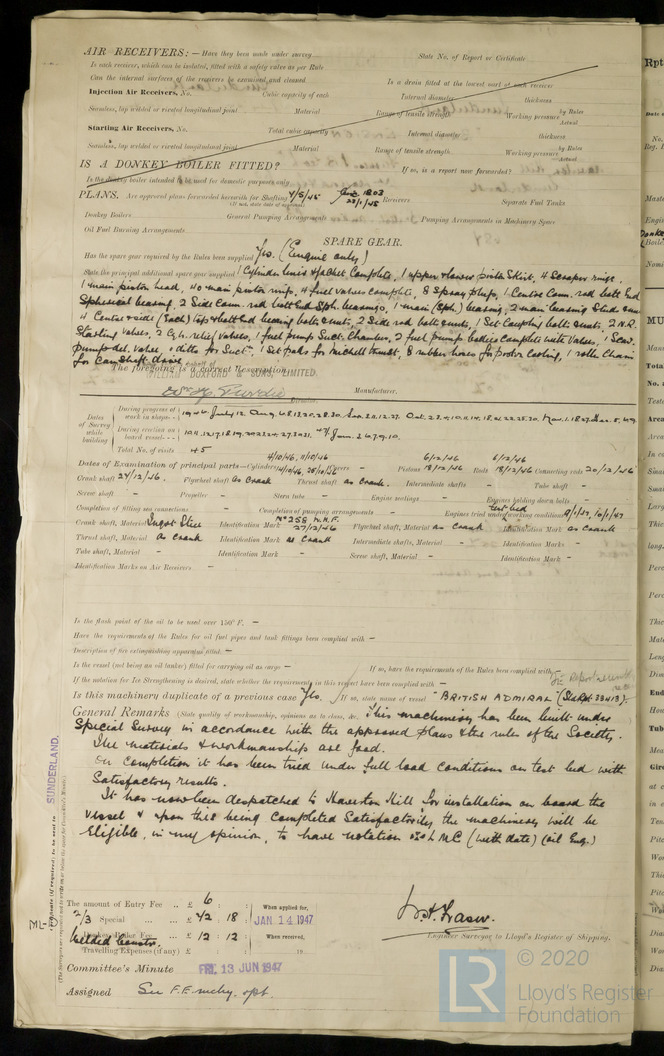 AIR RECEIVERS: — Have they been made under survey State No. of Report or Certificate
Is each receiver, which can be isolated, fitted with a safety valve as per Rule
Can the internal surfaces of the receivers be examined and cleaned Is a drain fitted at the lowest part of each receiver
Injection Air Receivers, No. Cubic capacity of each Internal diameter thickness
Seamless, lap welded or riveted longitudinal joint Material Range of tensile strength Working pressure by Rules Actual
Starting Air Receivers, No. Total cubic capacity Internal diameter thickness
Seamless, lap welded or riveted longitudinal joint Material Range of tensile strength Working pressure by Rules Actual
IS A DONKEY BOILER FITTED? If so, is a report now forwarded?
Is the donkey boiler intended to be used for domestic purposes only
PLANS. Are approved plans forwarded herewith for Shafting 4/5/45 1803 22/1/45 Receivers Separate Fuel Tanks
(If not, state date of approval)
Donkey Boilers General Pumping Arrangements Pumping Arrangements in Machinery Space
Oil Fuel Burning Arrangements
SPARE GEAR.
Has the spare gear required by the Rules been supplied Yes. (Engine only)
State the principal additional spare gear supplied 1 Cylinder liner & Jacket Complete, 1 upper & lower piston Skirt, 4 Scraper rings,
1 main piston head, 40 main piston rings, 4 fuel valves complete, 8 Spray plugs, 1 Centre Conn. rod bolt End
Spherical bearing, 2 Side Conn. rod bolt End Sph. bearings, 1 main (Sph.) bearing, 2 main bearing Studs & nuts
4 Centre & side (Each) top & bott End bearing bolts & nuts, 2 Side rod bolts & nuts, 1 Set Coupling bolts & nuts, 2 N.R.
Starting Valves, 2 Cyl. relief Valves, 1 fuel pump Suct. Chamber, 2 fuel pump bodies Complete with Valves, 1 Scav.
pump del. valve, 1 ditto for Suctn, 1 Set pads for Michell thrust, 8 rubber hoses for piston Cooling, 1 roller Chain
for Camshaft drive.
The foregoing is a correct description,
WILLIAM DOXFORD & SONS, LIMITED.
Wm H. Purdie
Manufacturer.
Dates of Survey while building
During progress of work in shops - -
During erection on board vessel - - -
Total No. of visits 45
Dates of Examination of principal parts—Cylinders 4/10/46, 11/10/46 14/10/46, 25/10/46 Covers – Pistons 6/12/46 18/12/46 Rods 6/12/46 18/12/46 Connecting rods 20/12/46
Crank shaft 27/12/46. Flywheel shaft as Crank Thrust shaft as Crank. Intermediate shafts – Tube shaft –
Screw shaft – Propeller – Stern tube – Engine seatings – Engines holding down bolts –
Completion of fitting sea connections – Completion of pumping arrangements – Engines tried under working conditions test bed 9/1/47, 10/1/47
Crank shaft, Material Ingot Steel Identification Mark No 258 W.H.F. 27/12/46 Flywheel shaft, Material as Crank Identification Mark as Crank
Thrust shaft, Material as Crank Identification Mark as Crank Intermediate shafts, Material – Identification Marks –
Tube shaft, Material – Identification Mark – Screw shaft, Material – Identification Mark –
Identification Marks on Air Receivers –
Is the flash point of the oil to be used over 150° F. –
Have the requirements of the Rules for oil fuel pipes and tank fittings been complied with –
Description of fire extinguishing apparatus fitted: –
Is the vessel (not being an oil tanker) fitted for carrying oil as cargo – If so, have the requirements of the Rules been complied with –
If the notation for Ice Strengthening is desired, state whether the requirements in this respect have been complied with –
Is this machinery duplicate of a previous case Yes. If so, state name of vessel - BRITISH ADMIRAL (Sld Rpt. 33413).
General Remarks (State quality of workmanship, opinions as to class, &c. This machinery has been built under
Special Survey in accordance with the approved plans & the rules of the Society.
The materials & workmanship are good.
On completion it has been tried under full load conditions on test bed with
Satisfactory results.
It has now been despatched to Haverton Hill for installation on board the
vessel & upon this being Completed Satisfactorily the machinery will be
Eligible, in my opinion, to have notation + L M C (with date) (Oil Eng.)
SUNDERLAND.
Certificate (if required) to be sent to
(The Surveyors are requested not to write on or below the space for Committee's Minute.)
The amount of Entry Fee .. £ 6 : : When applied for,
2/3 Special ... ... £ 42 : 18 : JAN 14 1947
Donkey Boiler Fee ... £ 12 : 12 : When received,
Welded Constn.
Travelling Expenses (if any) £ : : 19
W.H. Fraser.
Engineer Surveyor to Lloyd's Register of Shipping.
Committee's Minute FRI. 13 JUN 1947
Assigned See F.E. mchy. rpt.
LR © 2020
Lloyd's Register
Foundation